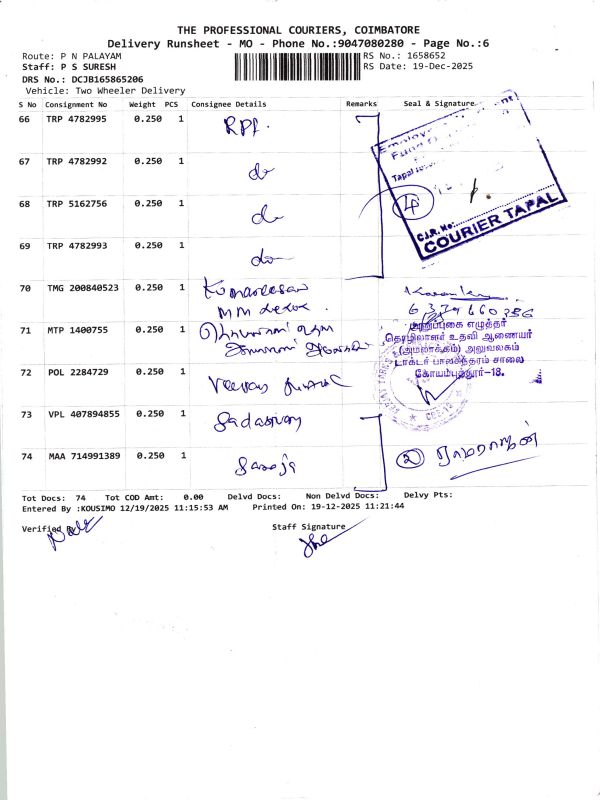 THE PROFESSIONAL COURIERS, COIMBATORE
Delivery Runsheet - MO - Phone No.:9047080280 - Page No.:6
Route: P N PALAYAM
RS No.: 1658652
Staff: P S SURESH
RS Date: 19-Dec-2025
DRS No.: DCJB165865206
Vehicle: Two Wheeler Delivery
S No Consignment No Weight PCS Consignee Details Remarks Seal & Signature
66 TRP 4782995 0.250 1
67 TRP 4782992 0.250 1 do
68 TRP 5162756 0.250 1 do
69 TRP 4782993 0.250 1 do
4
C.I.R. No:
COURIER TAPAL
70 TMG 200840523 0.250 1 Kumaresan
71 MTP 1400755 0.250 1
எழுத்தர்
தொழிலாளர் உதவி ஆணையர்
(அமலாக்கம்) அலுவலகம்
டாக்டர் பாலசுந்தரம் சாலை
கோயம்புத்தூர்-18.
72 POL 2284729 0.250 1
73 VPL 407894855 0.250 1 Sadasivam
74 MAA 714991389 0.250 1 Saroja
2 ராமராஜன்
Tot Docs: 74 Tot COD Amt: 0.00 Delvd Docs: Non Delvd Docs: Delvy Pts:
Entered By :KOUSIMO 12/19/2025 11:15:53 AM Printed On: 19-12-2025 11:21:44
Verified By
Staff Signature